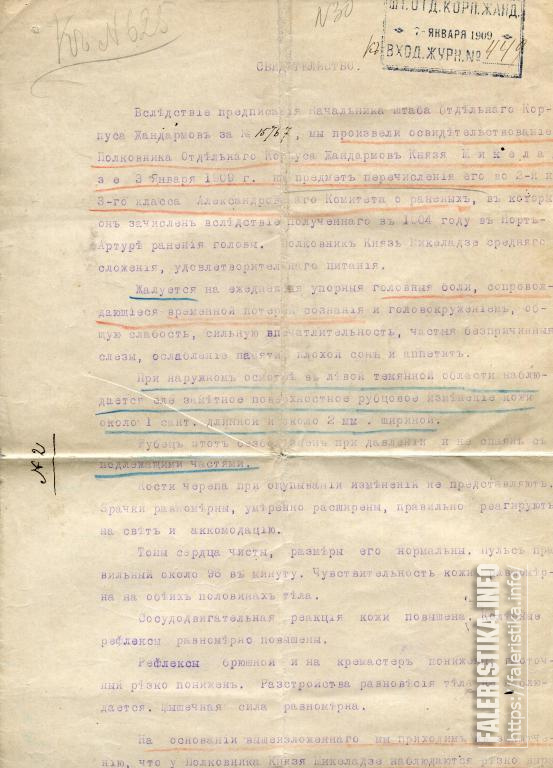 Кв № 625
№30
ШТ.ОТД.КОРП.ЖАНД.
7- ЯНВАРЯ 1909
ВХОД.ЖУРН.№ 449
СВИДѢТЕЛЬСТВО.
Вслѣдствіе предписанія Начальника Штаба Отдѣльнаго Кор-
пуса Жандармовъ за № 15767, мы произвели освидѣтельствованіе
Полковника Отдѣльнаго Корпуса Жандармовъ Князя Микелад
зе 3 Января 1909 г. на предметъ перечисленія его во 2-й и
3-го класса Александровскаго Комитета о раненыхъ, въ котор
онъ зачисленъ вслѣдствіе полученнаго въ 1904 году въ Портъ-
Артурѣ раненія головы. Полковникъ Князь Микеладзе средняго
сложенія, удовлетворительнаго питанія.
Жалуется на ежедневныя упорныя головныя боли, сопровож-
дающіеся временной потерей сознанія и головокруженіемъ, об-
щую слабость, сильную впечатлительность, частыя безпричинныя
слезы, ослабленіе памяти, плохой сонъ и аппетитъ.
При наружномъ осмотрѣ въ лѣвой темянной области наблю-
дается еле замѣтное поверхностное рубцовое измѣненіе кожи
около 1 сант. длинной и около 2 мм. шириной.
Рубецъ этотъ безболѣзненъ при давленіи и не спаянъ съ
подлежащими частями.
№ 2
Кости черепа при ощупываніи измѣненій не представляютъ.
Зрачки равномѣрны, умѣренно расширены, правильно реагируютъ
на свѣтъ и аккомодацію.
Тоны сердца чисты, размѣры его нормальны. Пульсъ пра
вильный около 96 въ минуту. Чувствительность кожи равномѣр-
на на обѣихъ половинахъ тѣла.
Сосудодвигательная реакція кожи повышена.
рефлексы равномѣрно повышены.
Рефлексы брюшной и на кремастеръ понижены,
ный рѣзко пониженъ. Разстройства равновѣсія тѣла
дается. Мышечная сила равномѣрна.
На основаніи вышеизложеннаго мы приходимъ
нію, что у Полковника Князя Микеладзе наблюдаются рѣзко выр
FALERISTIKA.INFO
https://faleristika.info